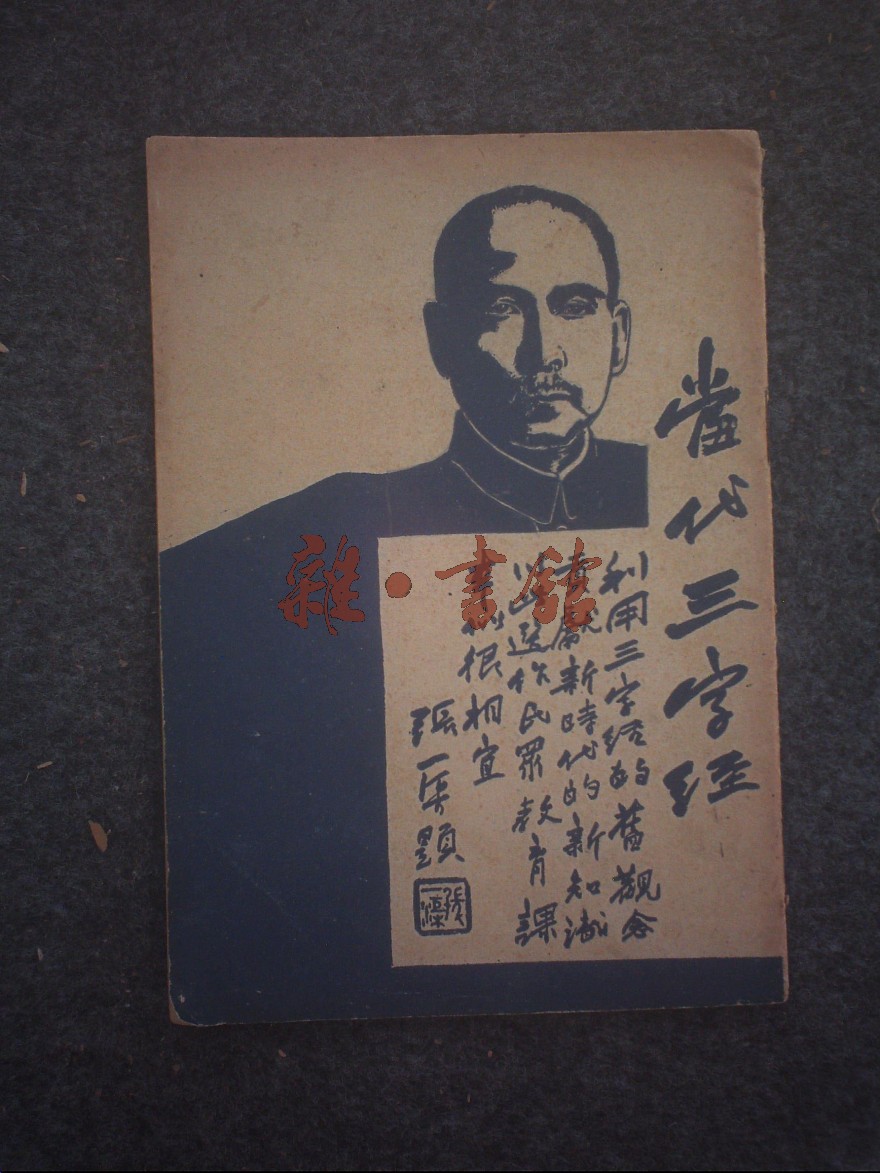 當代三字經
利用三字經的舊觀念
貢獻新時代的新知識
以此選作民眾教育課
則很相宜
張一渠題
張一渠
雜·書館